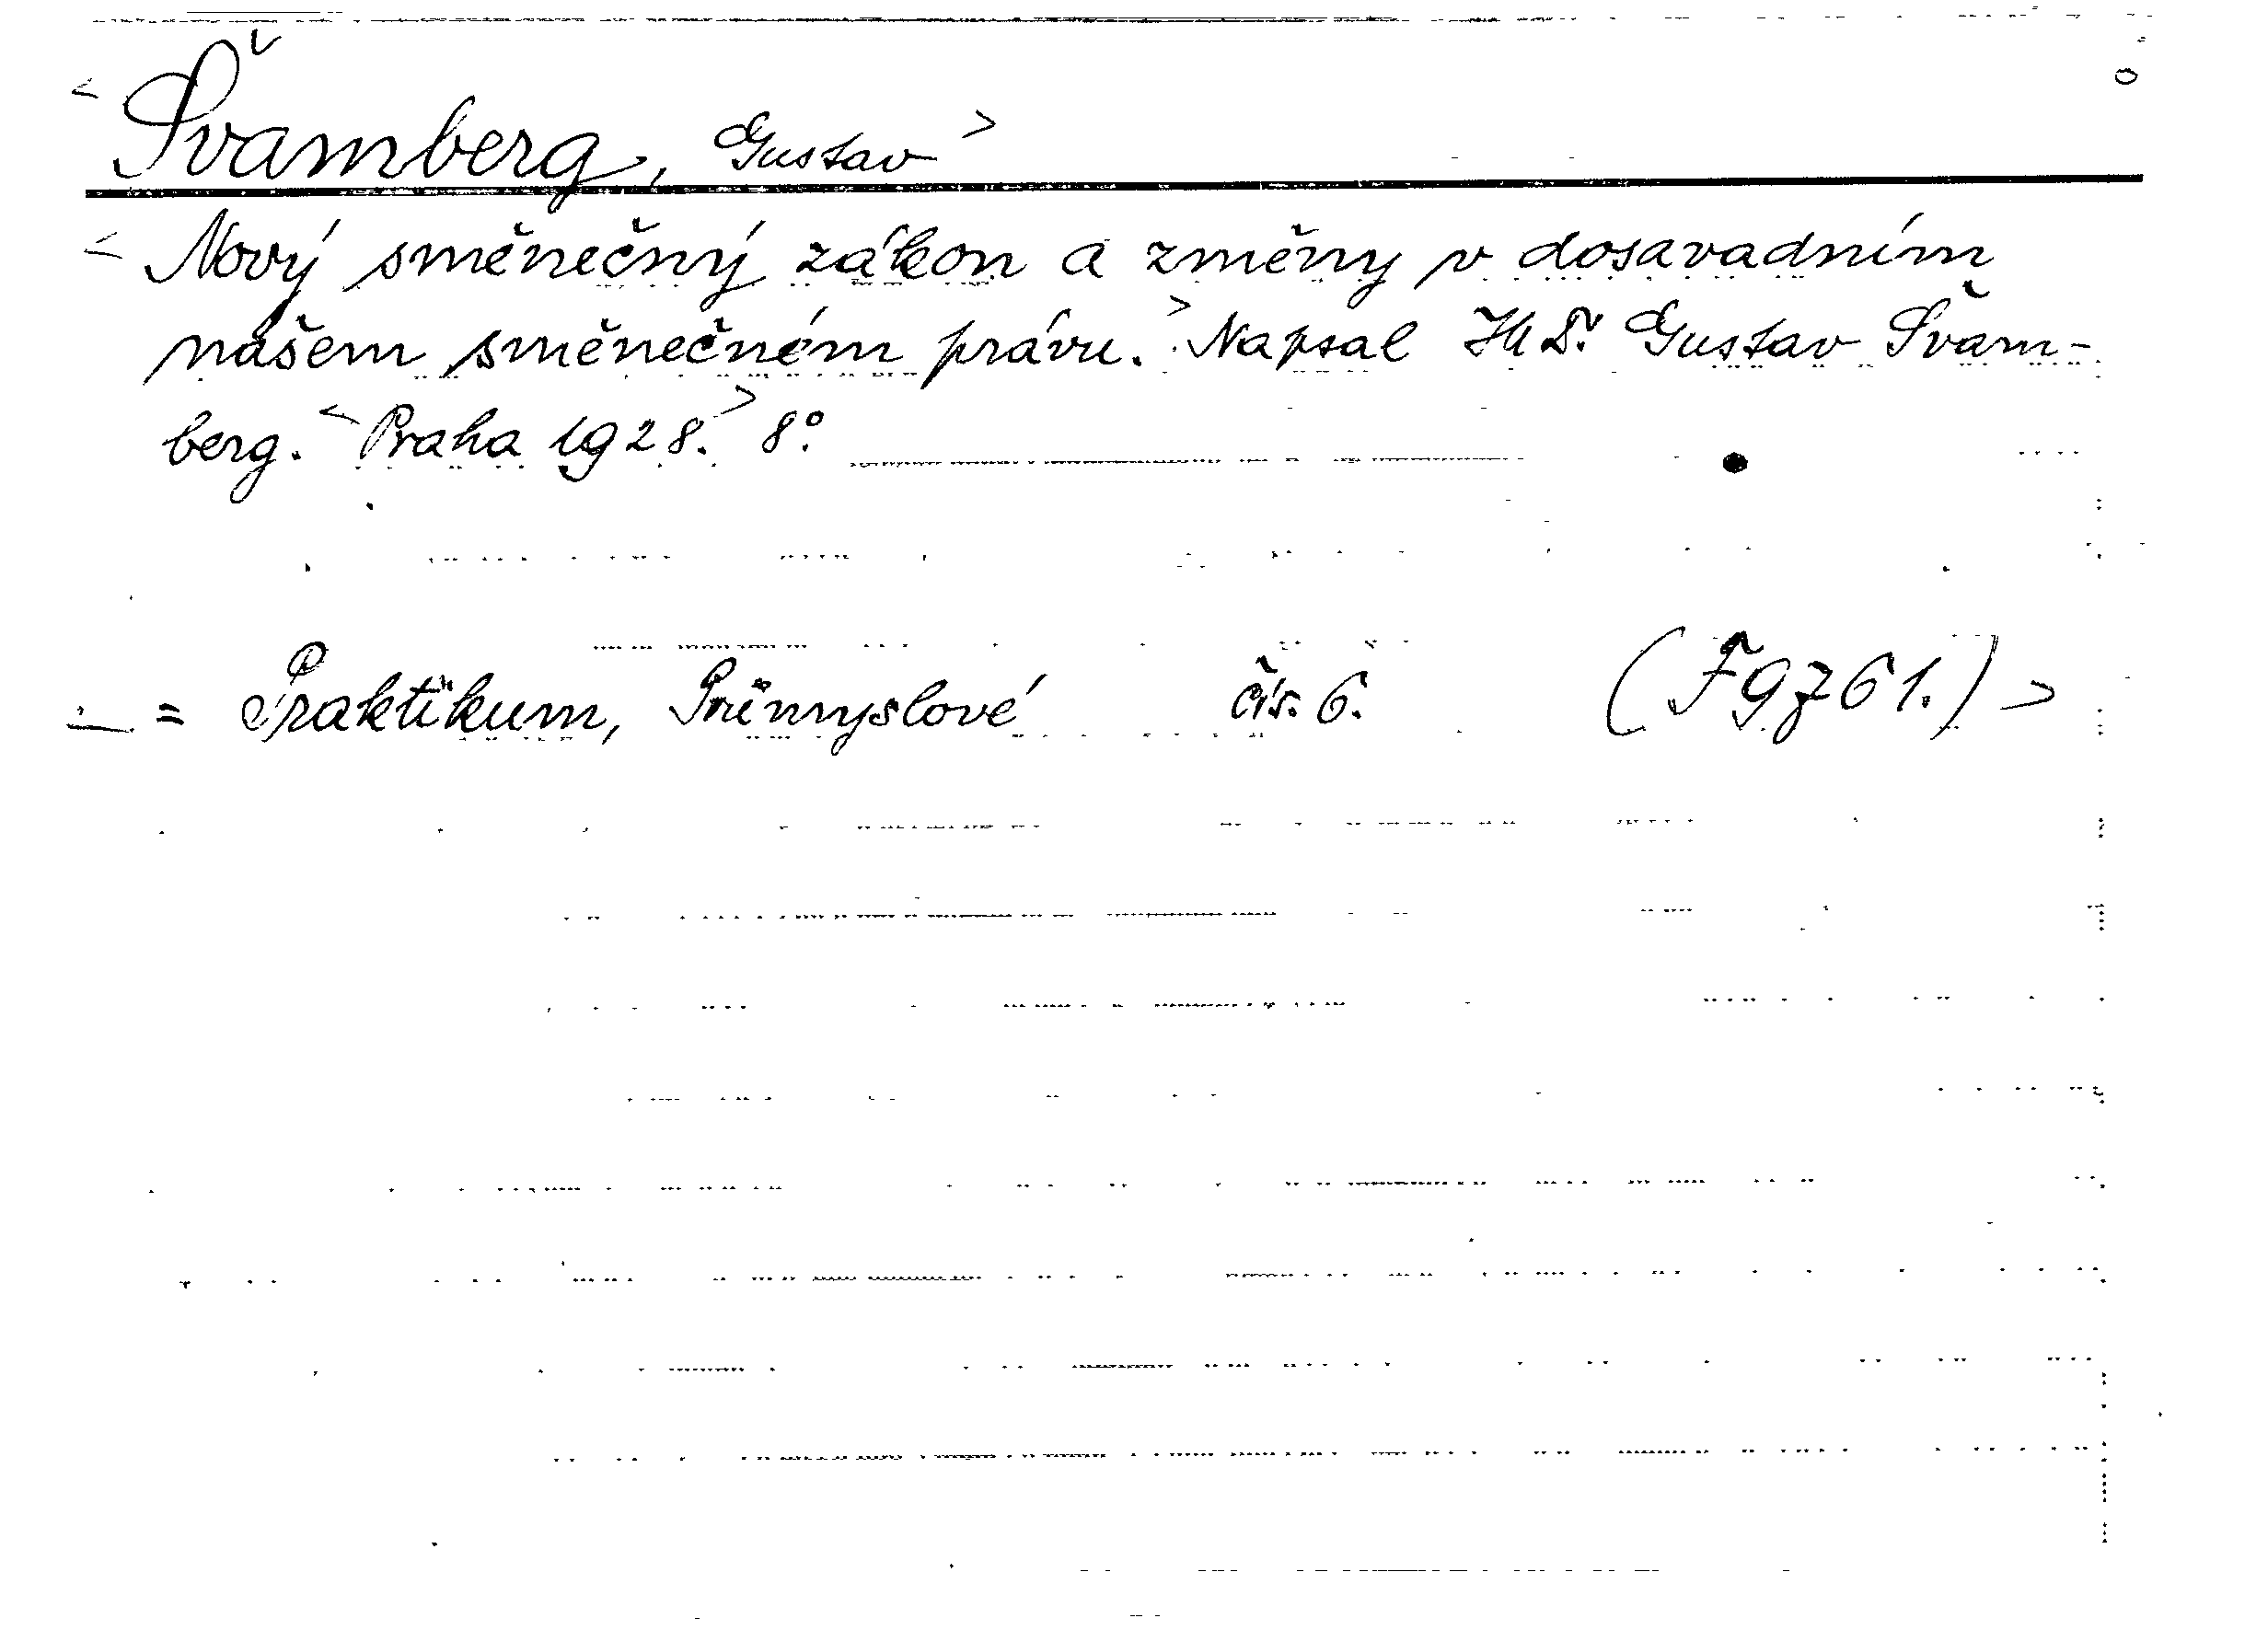 < Švamberg, Gustav >
< Nový směnečný zákon a změny v dosavadním
našem směnečném právu. > Napsal JUDr. Gustav Švam-
berg. < Praha 1928. > 8°.
= Praktikum, Průmyslové čís. 6. (F 9761.) >